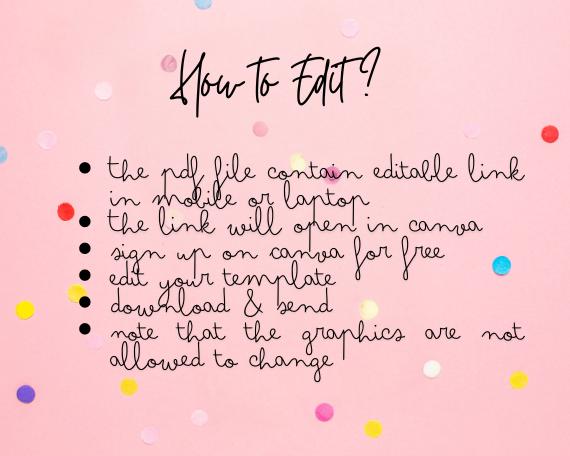 How to Edit?
• the pdf file contain editable link
in mobile or laptop
• the link will open in canva
• sign up on canva for free
• edit your template
• download & send
• note that the graphics are not
allowed to change